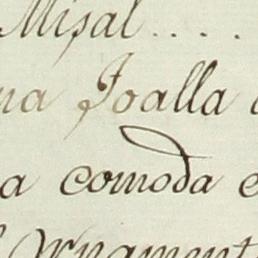 Misal....
na Toalla
a comoda e
Ornament